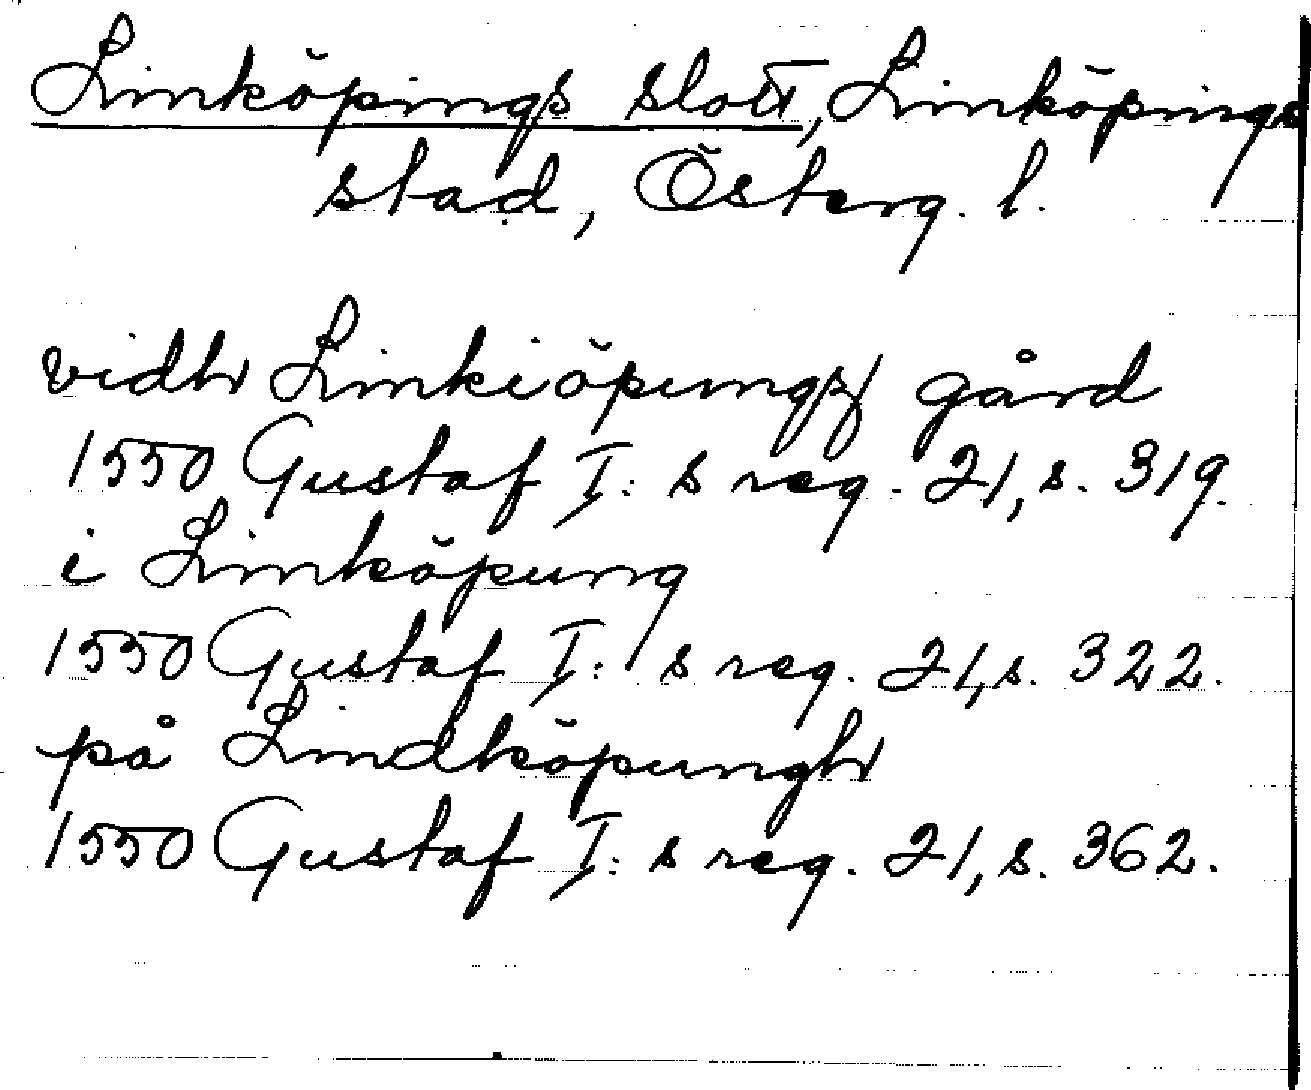 Linköpings slott, Linköpings
stad, Österg. l.
vidh Linkiöpungs gård
1550 Gustaf I: s reg. 21, s. 319.
i Linköpung
1550 Gustaf I: s reg. 21, s. 322.
på Lindköpungh
1550 Gustaf I: s reg. 21, s. 362.